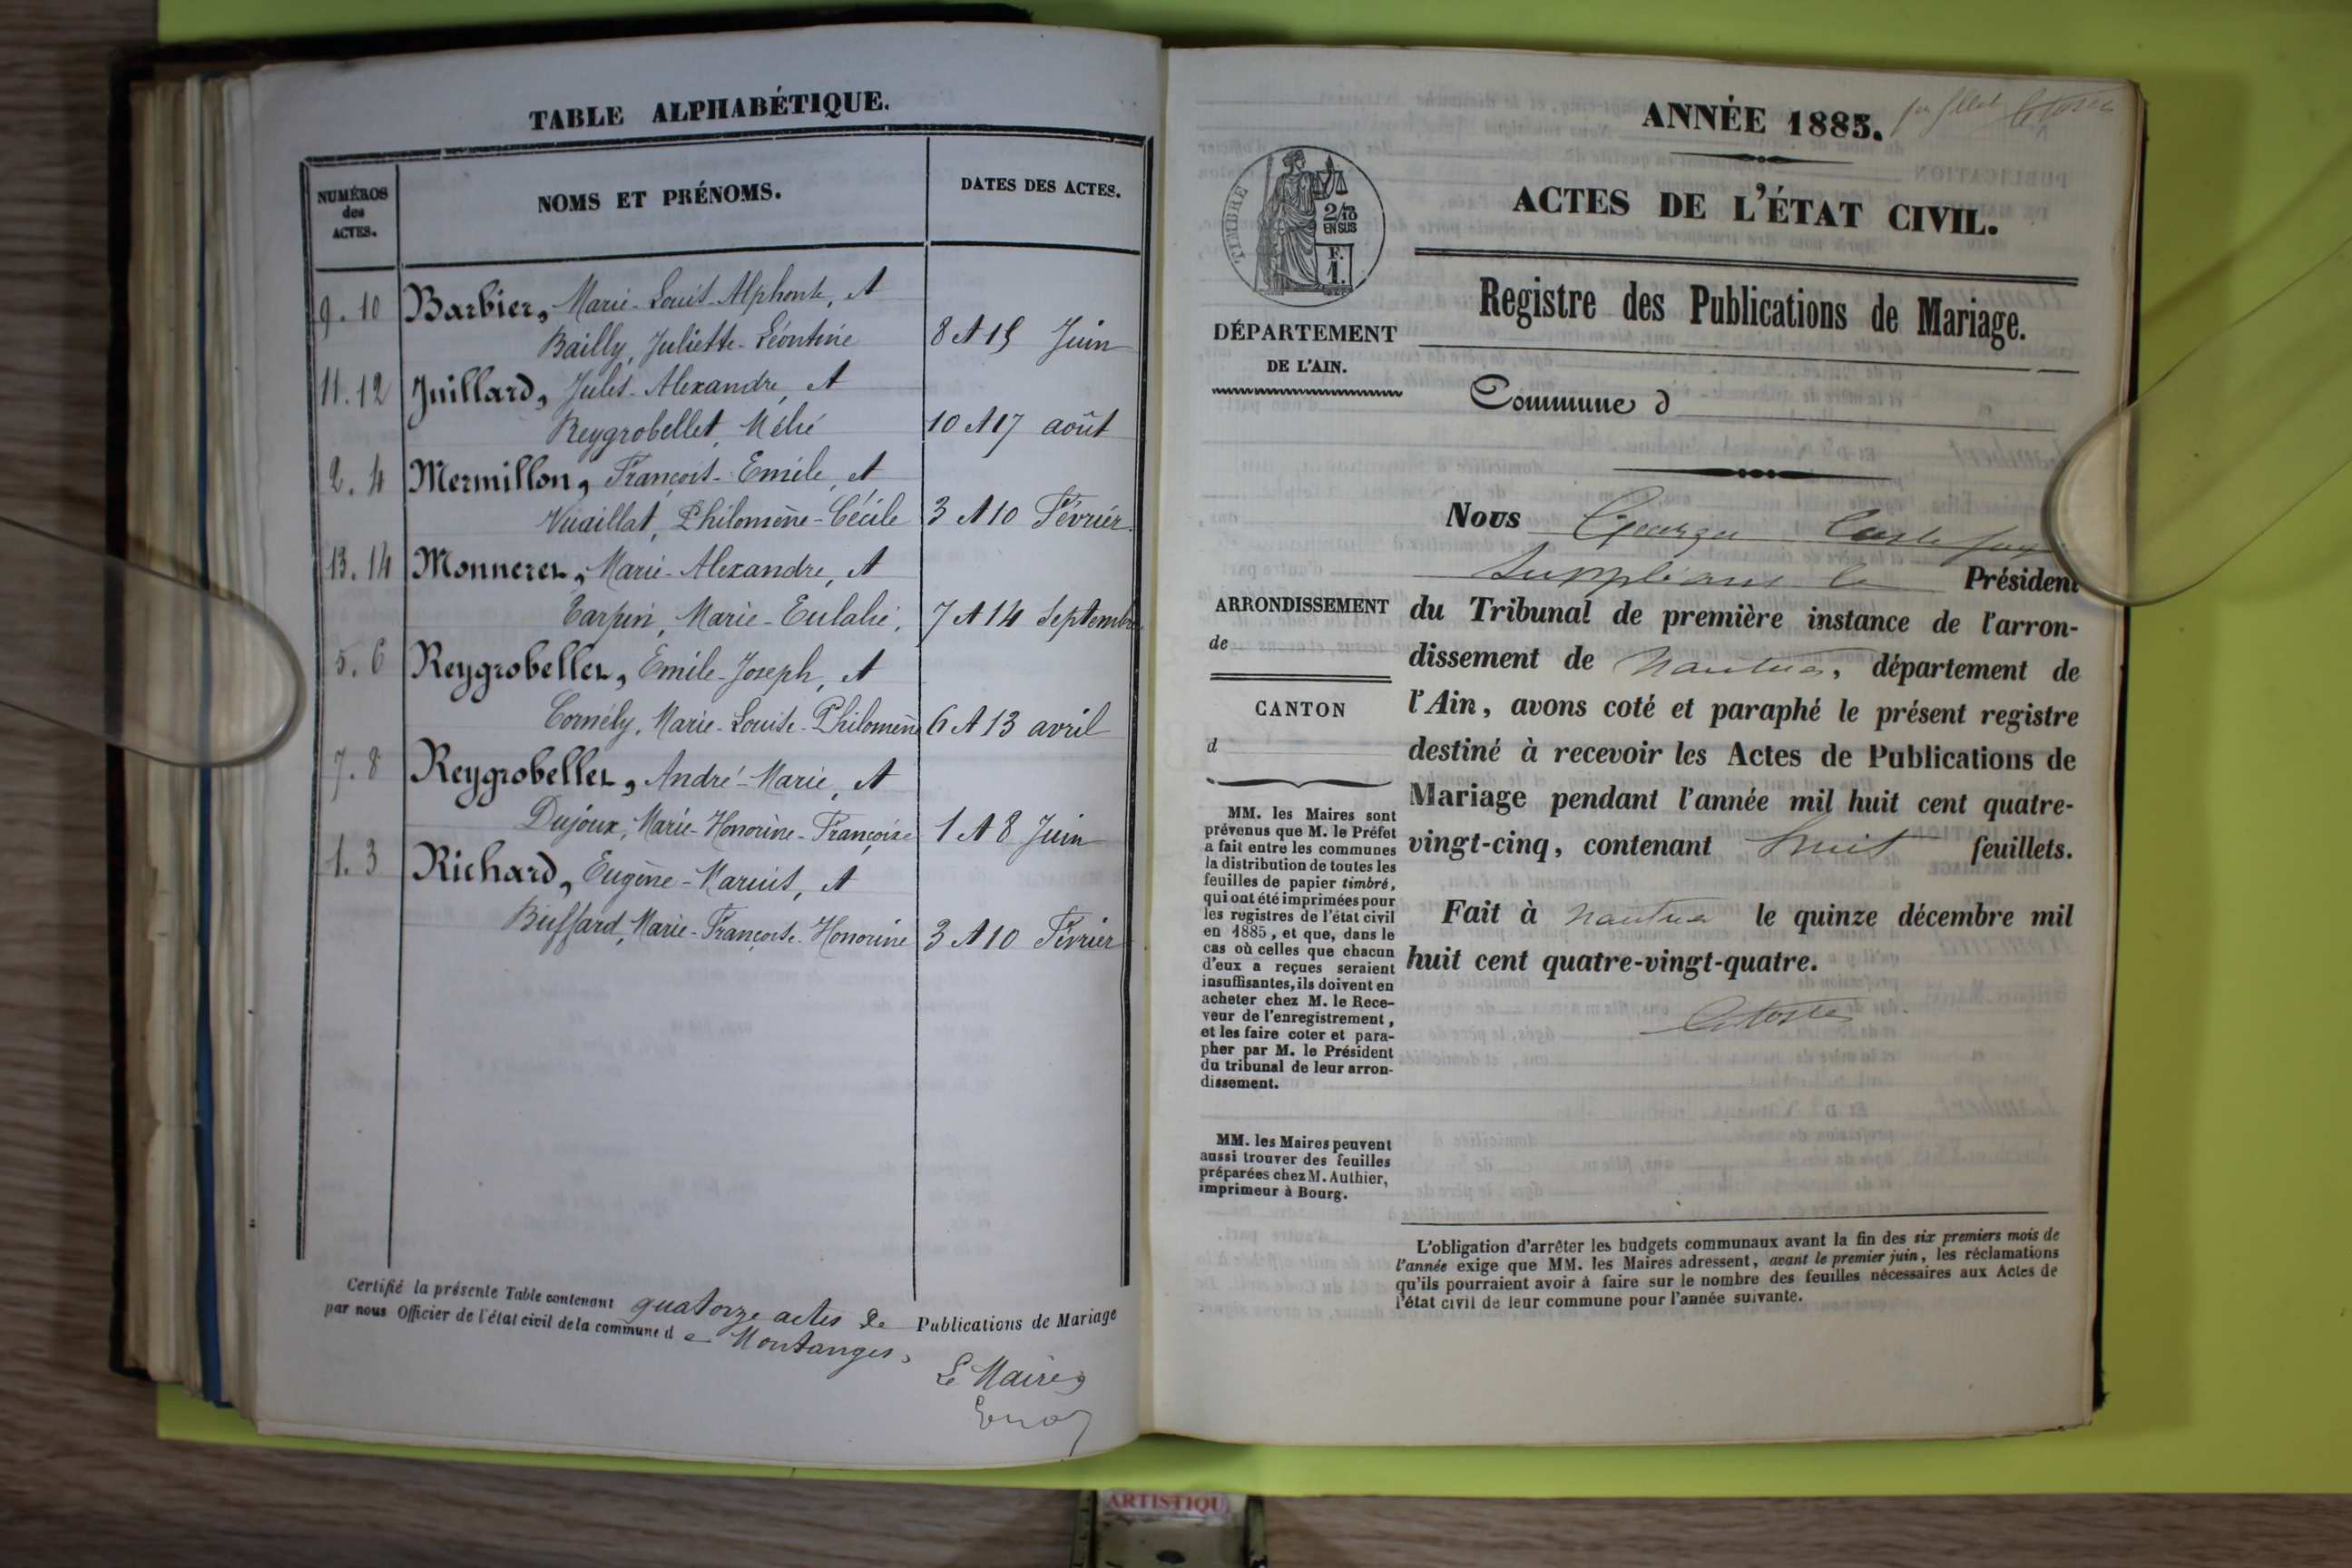 TABLE ALPHABÉTIQUE.
NUMÉROS des ACTES.
NOMS ET PRÉNOMS.
DATES DES ACTES.
9. 10 Barbier, Marie-Louis-Alphonse, et
Bailly, Juliette-Léontine 8 et 15 Juin
11. 12 Juillard, Jules-Alexandre, et
Reygrobellet, Mélie 10 et 17 août
2. 4 Mermillon, François-Emile, et
Vuaillat, Philomène-Cécile 3 et 10 Février
13. 14 Monneret, Marie-Alexandre, et
Tarpin, Marie-Eulalie, 7 et 14 Septembre
5. 6 Reygrobellet, Emile-Joseph, et
Cornély, Marie-Louise-Philomène 6 et 13 avril
7. 8 Reygrobellet, André-Marie, et
Dujoux, Marie-Honorine-Françoise 1 et 8 Juin
1. 3 Richard, Eugène-Marius, et
Buffard, Marie-Françoise-Honorine 3 et 10 Février
Certifié la présente Table contenant quatorze actes de Publications de Mariage
par nous Officier de l'état civil de la commune de Montanges,
Le Maire,
ANNÉE 1885.
ACTES DE L'ÉTAT CIVIL.
TIMBRE
2/10
EN SUS
F.
1.
Registre des Publications de Mariage.
DÉPARTEMENT
DE L'AIN.
Commune d
Nous Georges
suppléant le Président
ARRONDISSEMENT
de
du Tribunal de première instance de l'arron-
dissement de Nantua, département de
CANTON
d
l'Ain, avons coté et paraphé le présent registre
destiné à recevoir les Actes de Publications de
Mariage pendant l'année mil huit cent quatre-
vingt-cinq, contenant huit feuillets.
Fait à Nantua le quinze décembre mil
huit cent quatre-vingt-quatre.
MM. les Maires sont
prévenus que M. le Préfet
a fait entre les communes
la distribution de toutes les
feuilles de papier timbré,
qui ont été imprimées pour
les registres de l'état civil
en 1885, et que, dans le
cas où celles que chacun
d'eux a reçues seraient
insuffisantes, ils doivent en
acheter chez M. le Rece-
veur de l'enregistrement,
et les faire coter et para-
pher par M. le Président
du tribunal de leur arron-
dissement.
MM. les Maires peuvent
aussi trouver des feuilles
préparées chez M. Authier,
imprimeur à Bourg.
L'obligation d'arrêter les budgets communaux avant la fin des six premiers mois de
l'année exige que MM. les Maires adressent, avant le premier juin, les réclamations
qu'ils pourraient avoir à faire sur le nombre des feuilles nécessaires aux Actes de
l'état civil de leur commune pour l'année suivante.
ARTISTIQU